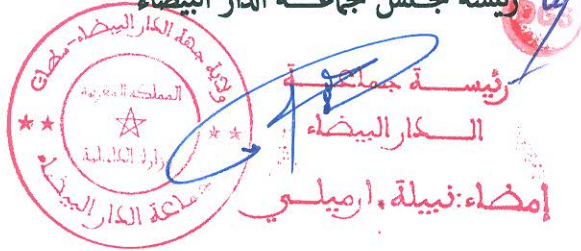 رئيسة مجلس جماعة الدار البيضاء
رئيسة جماعة
الدار البيضاء
إمضاء:نبيلة.ارميلي
ولاية جهة الدار البيضاء-سطات
المملكة المغربية
وزارة الداخلية
جماعة الدار البيضاء